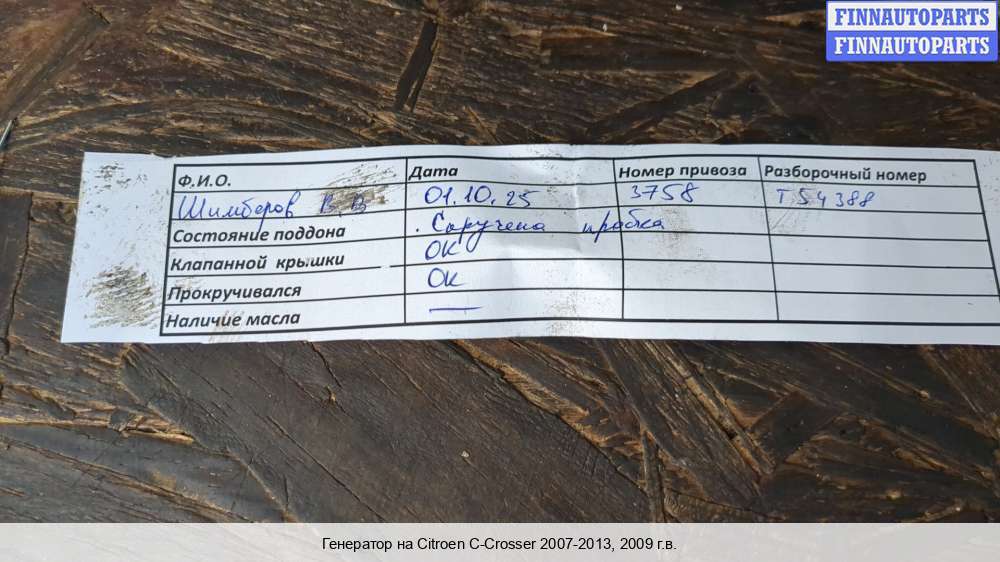 FINNAUTOPARTS
FINNAUTOPARTS
Ф.И.О. Дата Номер привоза Разборочный номер
Шимберов В.В 01.10.25 3758 T54388
Состояние поддона . Скручена пробка
Клапанной крышки ОК
Прокручивался ОК
Наличие масла —
Генератор на Citroen C-Crosser 2007-2013, 2009 г.в.